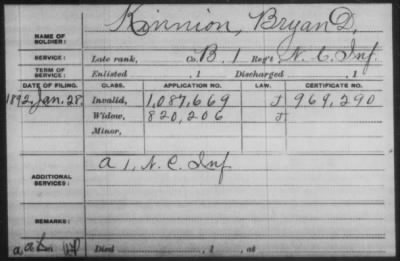 NAME OF SOLDIER: Kinnion, Bryan D.
SERVICE: Late rank, Co. B. 1 Reg't N. C. Inf.
TERM OF SERVICE: Enlisted , 1 Discharged , 1
DATE OF FILING. CLASS. APPLICATION NO. LAW. CERTIFICATE NO.
1892, Jan. 28. Invalid, 1,087,669 J 969,290
Widow, 820,206 J.
Minor,
ADDITIONAL SERVICES: a 1, N. C. Inf
REMARKS:
Died , 1 , at